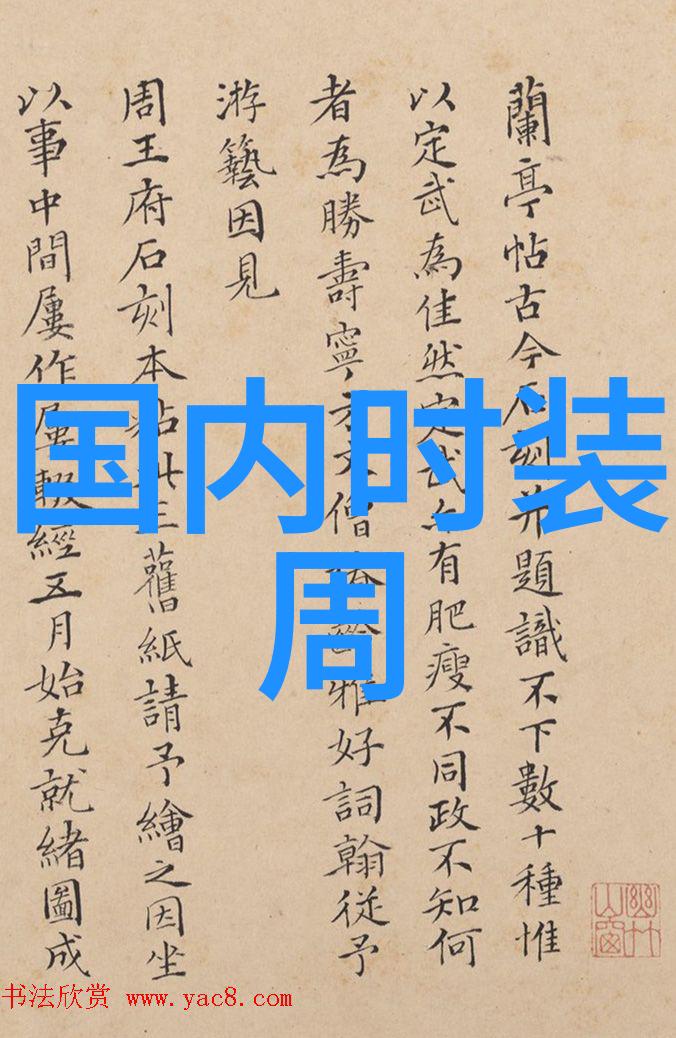 蘭亭帖古今石刻并題識不下數十種惟
以定武為佳然定武亦有肥瘦不同政不知何
者為勝壽寧方丈僧雅好詞翰從予
游藝因見
周王府石刻本粘此三舊紙請予繪之因坐
以事中間屢作屢輟經五月始克就緒圖成
国内时装
周
幽竹山窗
书法欣赏 www.yac8.com